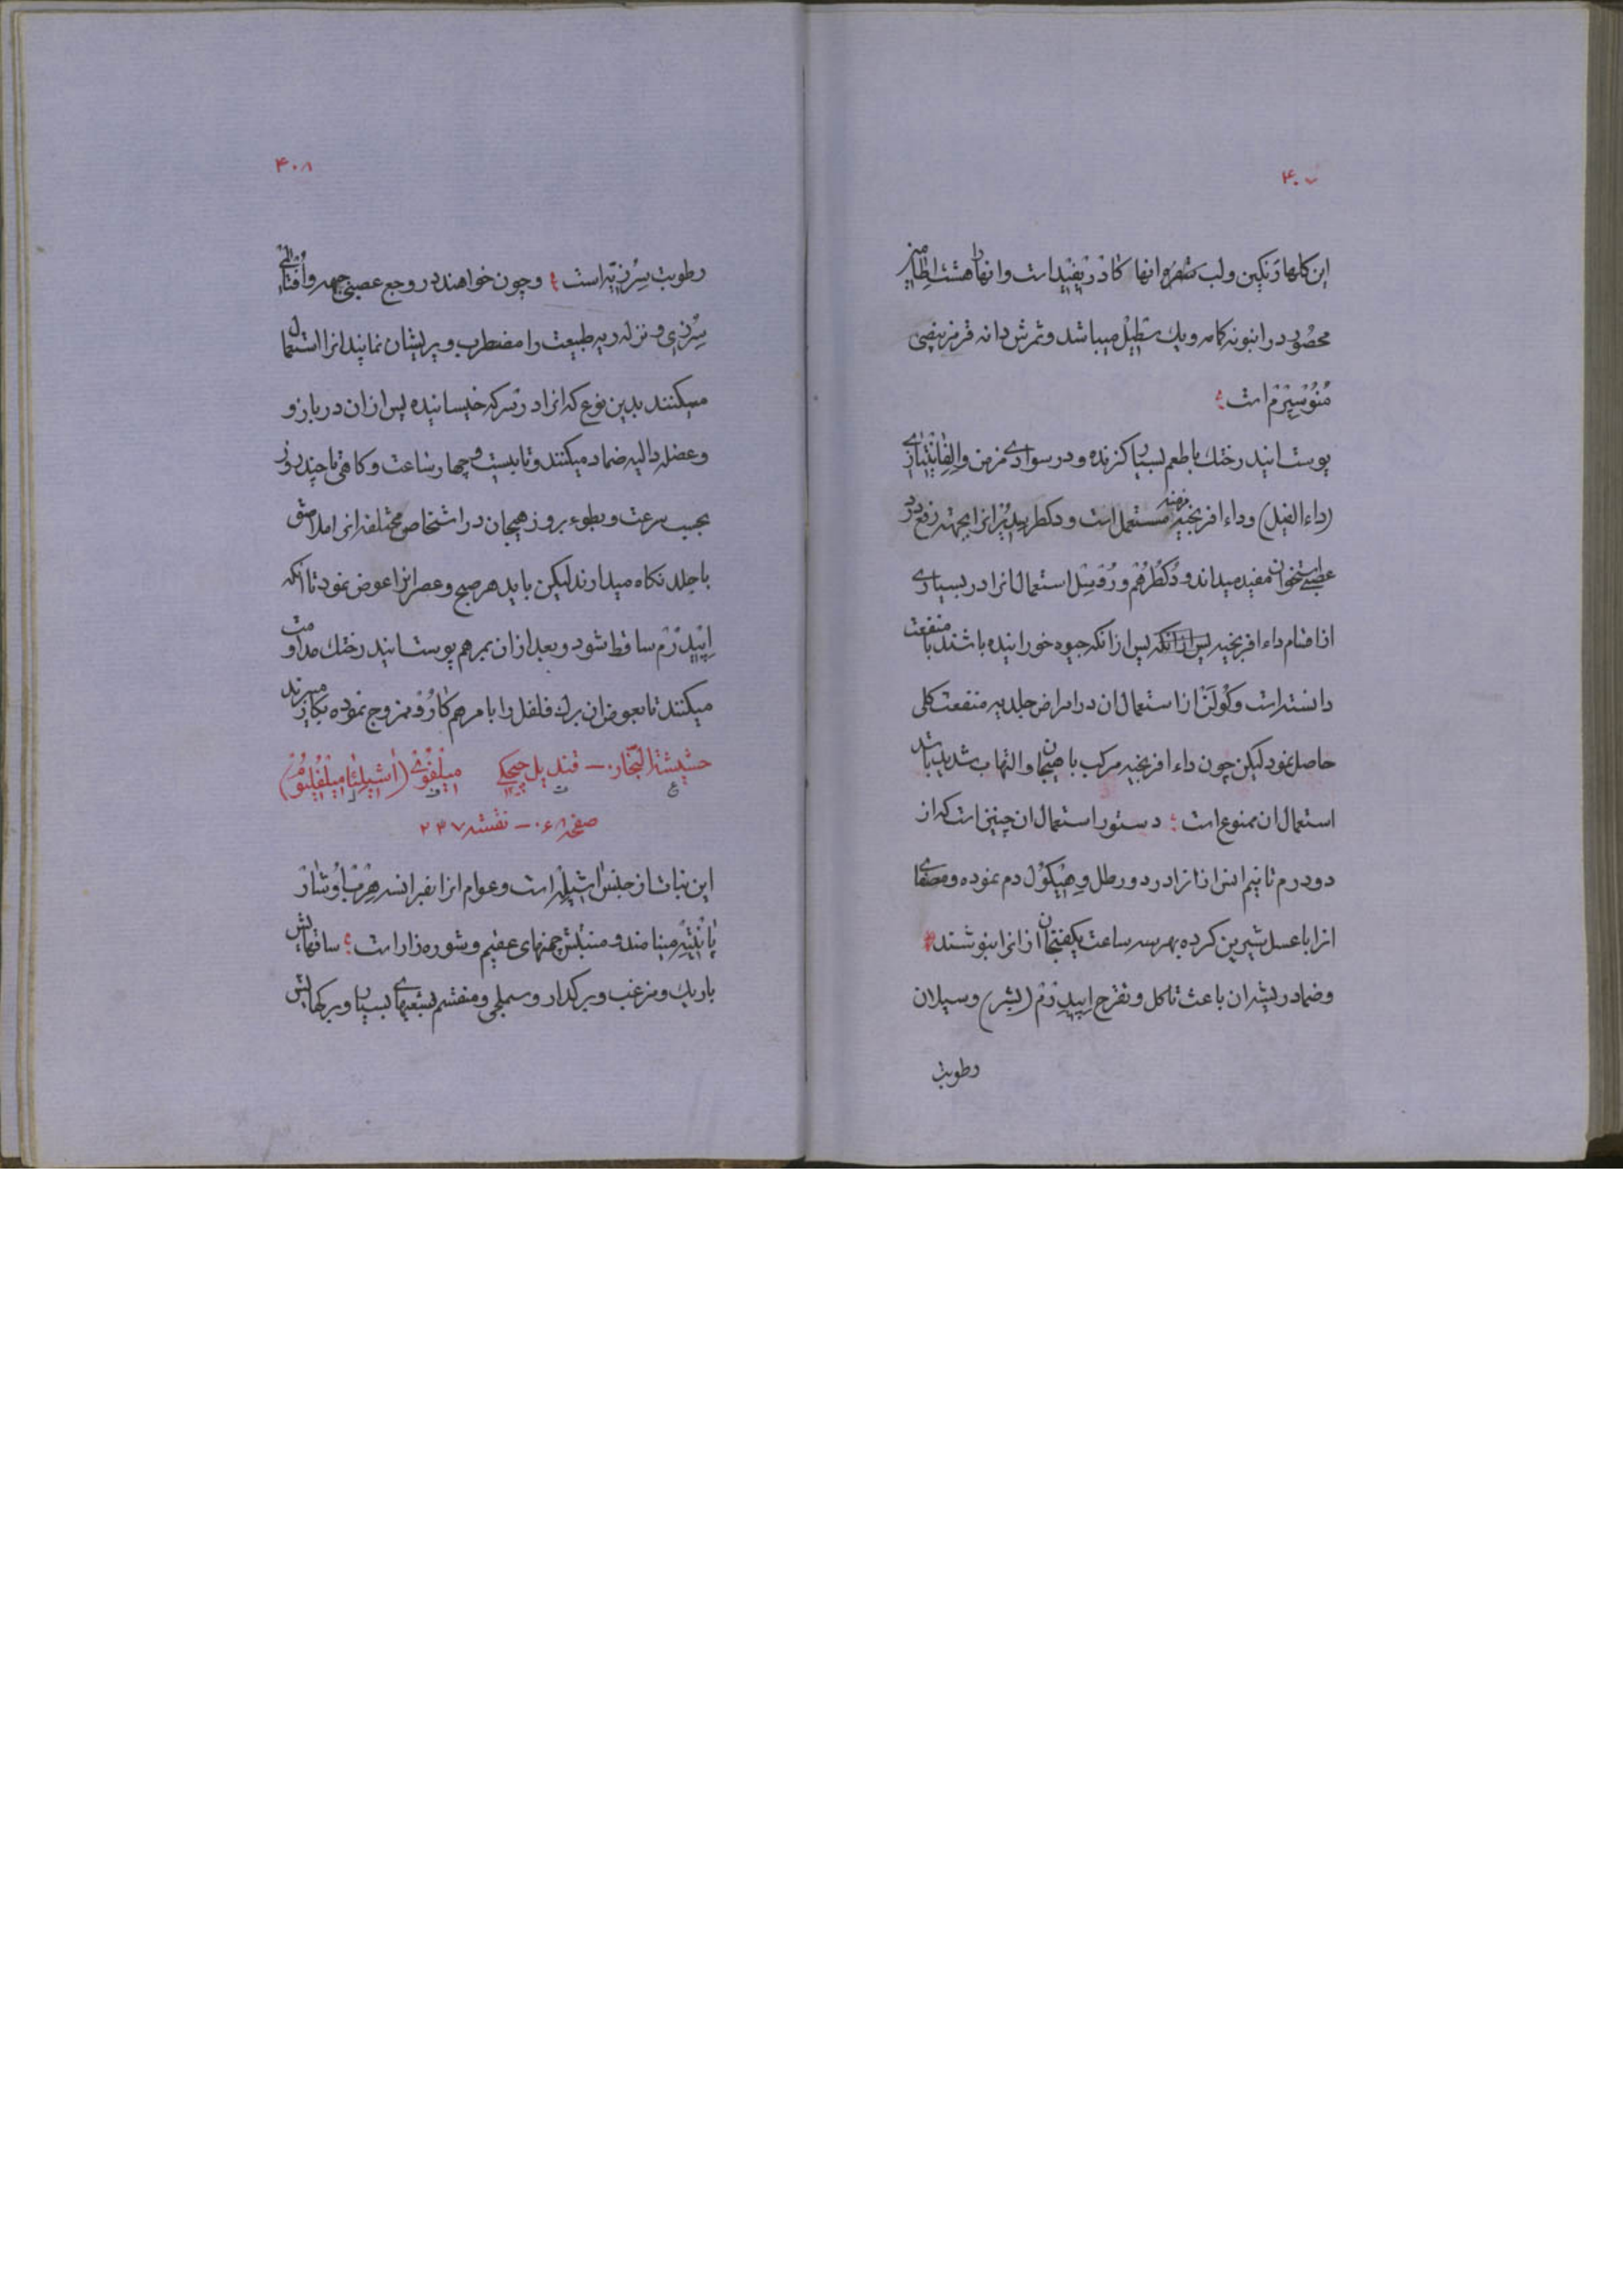 ۴۰۷
این کلها رنکین ولب شهره انها کادر یفید است وانها را هشت اطامیز
محصور در انبوبه کامه ویك سطیل میباشد وثمرش دانه قرمز بیضی
منوسپرم است
پوست اینید رختك با طعم بسیار کزنده ودر سودای مزمن والفانتیازی
(داء الفیل) وداء افرنجیه مزمنه مستعمل است ودکطر انرا بجهته رفع درد
عصبی استخوان مفید میداند ودکطر هم ورد میل استعمال انرا در بسیاری
از اقسام داء افرنجیه پس از انکه پس از انکه جیوه خورانیده باشند با منفعت
دانسته است وکولن از استعمال ان در امراض جلدیه منفعت کلی
حاصل نمود لیکن چون داء افرنجیه مرکب با هیجان والتهاب شدید باشد
استعمال ان ممنوع است دستور استعمال ان چنین است که از
دو درم تا نیم انس از انرا در دو رطل وهیکول دم نموده ومصفای
انرا با عسل شیرین کرده بهر سه ساعت یکفنجان از انرا بنوشند
وضماد ریشه ان باعث تاکل وتقرح اپیدرم (بشره) وسیلان
رطوبت
۴۰۸
رطوبت سرزیه است وچون خواهند در وجع عصبی چهره وافتالمی
سرزی ونزله ریه طبیعت را مضطرب وپریشان نمایند انرا استعمال
میکنند بدین نوع که انرا در سرکه خیسانیده پس از ان در بازو
وعضله دالیه ضماد میکنند وتا بیست وچهار ساعت وکاهی تا چند روز
بحسب سرعت وبطوء بروز هیجان در اشخاص مختلفه انرا ملاصق
با جلد نکاه میدارند لیکن باید هر صبح وعصر انرا عوض نمود تا انکه
اپیدرم ساقط شود وبعد از ان بمرهم پوست اینید رختك مداومت
میکنند تا بعوض ان برك فلفل را با مرهم کارو ممزوج نموده بکار میبرند
حشیشة النجار – قندیل چیچکی میلفوی (اشیلئا میلفلیوم)
صفحه ۶۰۸ – نقشه ۲۳۷
این نبات از جنس اشیله است وعوام انرا بفرانسه هرب او شار
پانتیه مینامند ومنبتش چمنهای عقیم وشوره زار است ساقهایش
باریك ومزغب وبرکدار وسملجی ومنقسم بشعبهای بسیار وبرکهایش